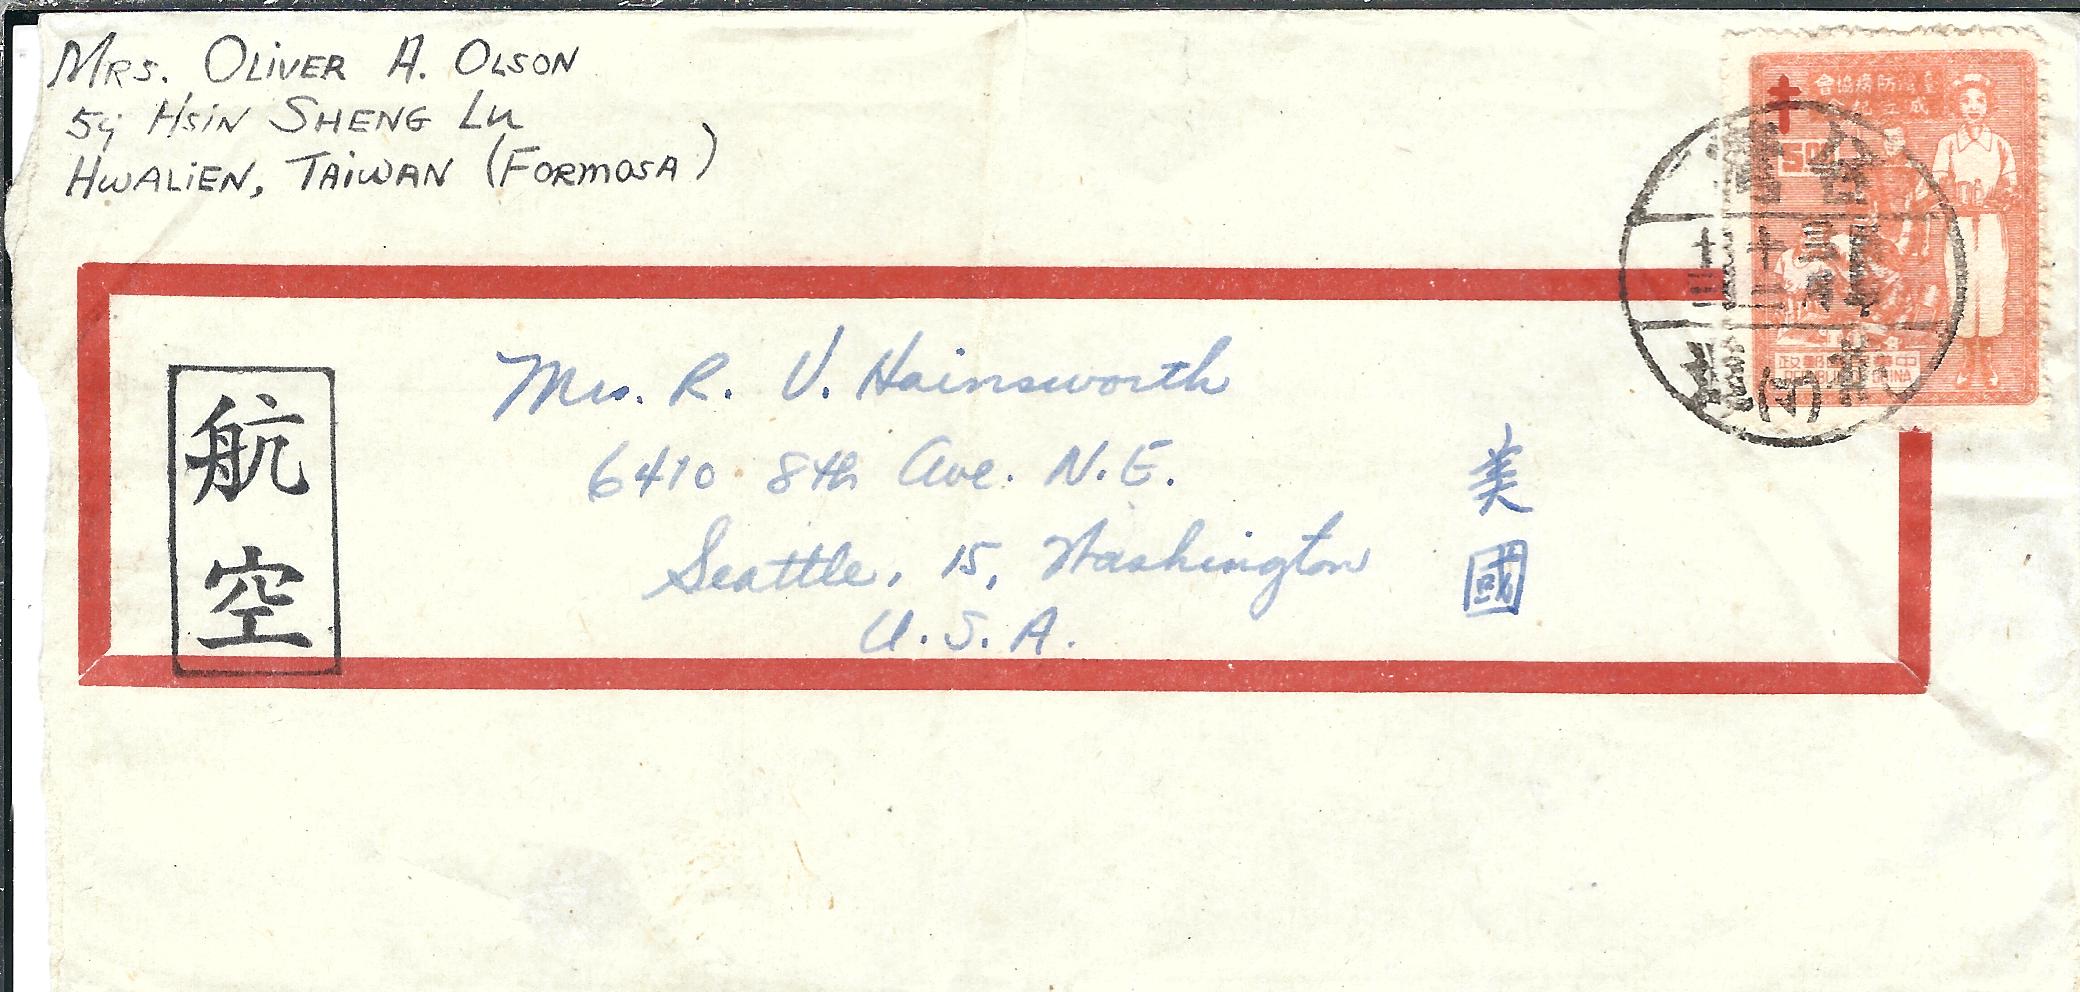 Mrs. Oliver A. Olson
59 Hsin Sheng Lu
Hwalien, Taiwan (Formosa)
會協癆防灣臺
成立紀
5.00
台灣
中華民國郵政
REPUBLIC OF CHINA
航空
Mrs. R. V. Hainsworth
6410 8th Ave. N.E.
Seattle, 15, Washington
U.S.A.
美國